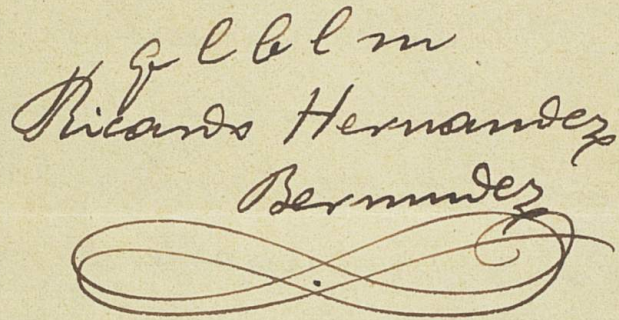 q l b l m
Ricardo Hernandez
Bermudez